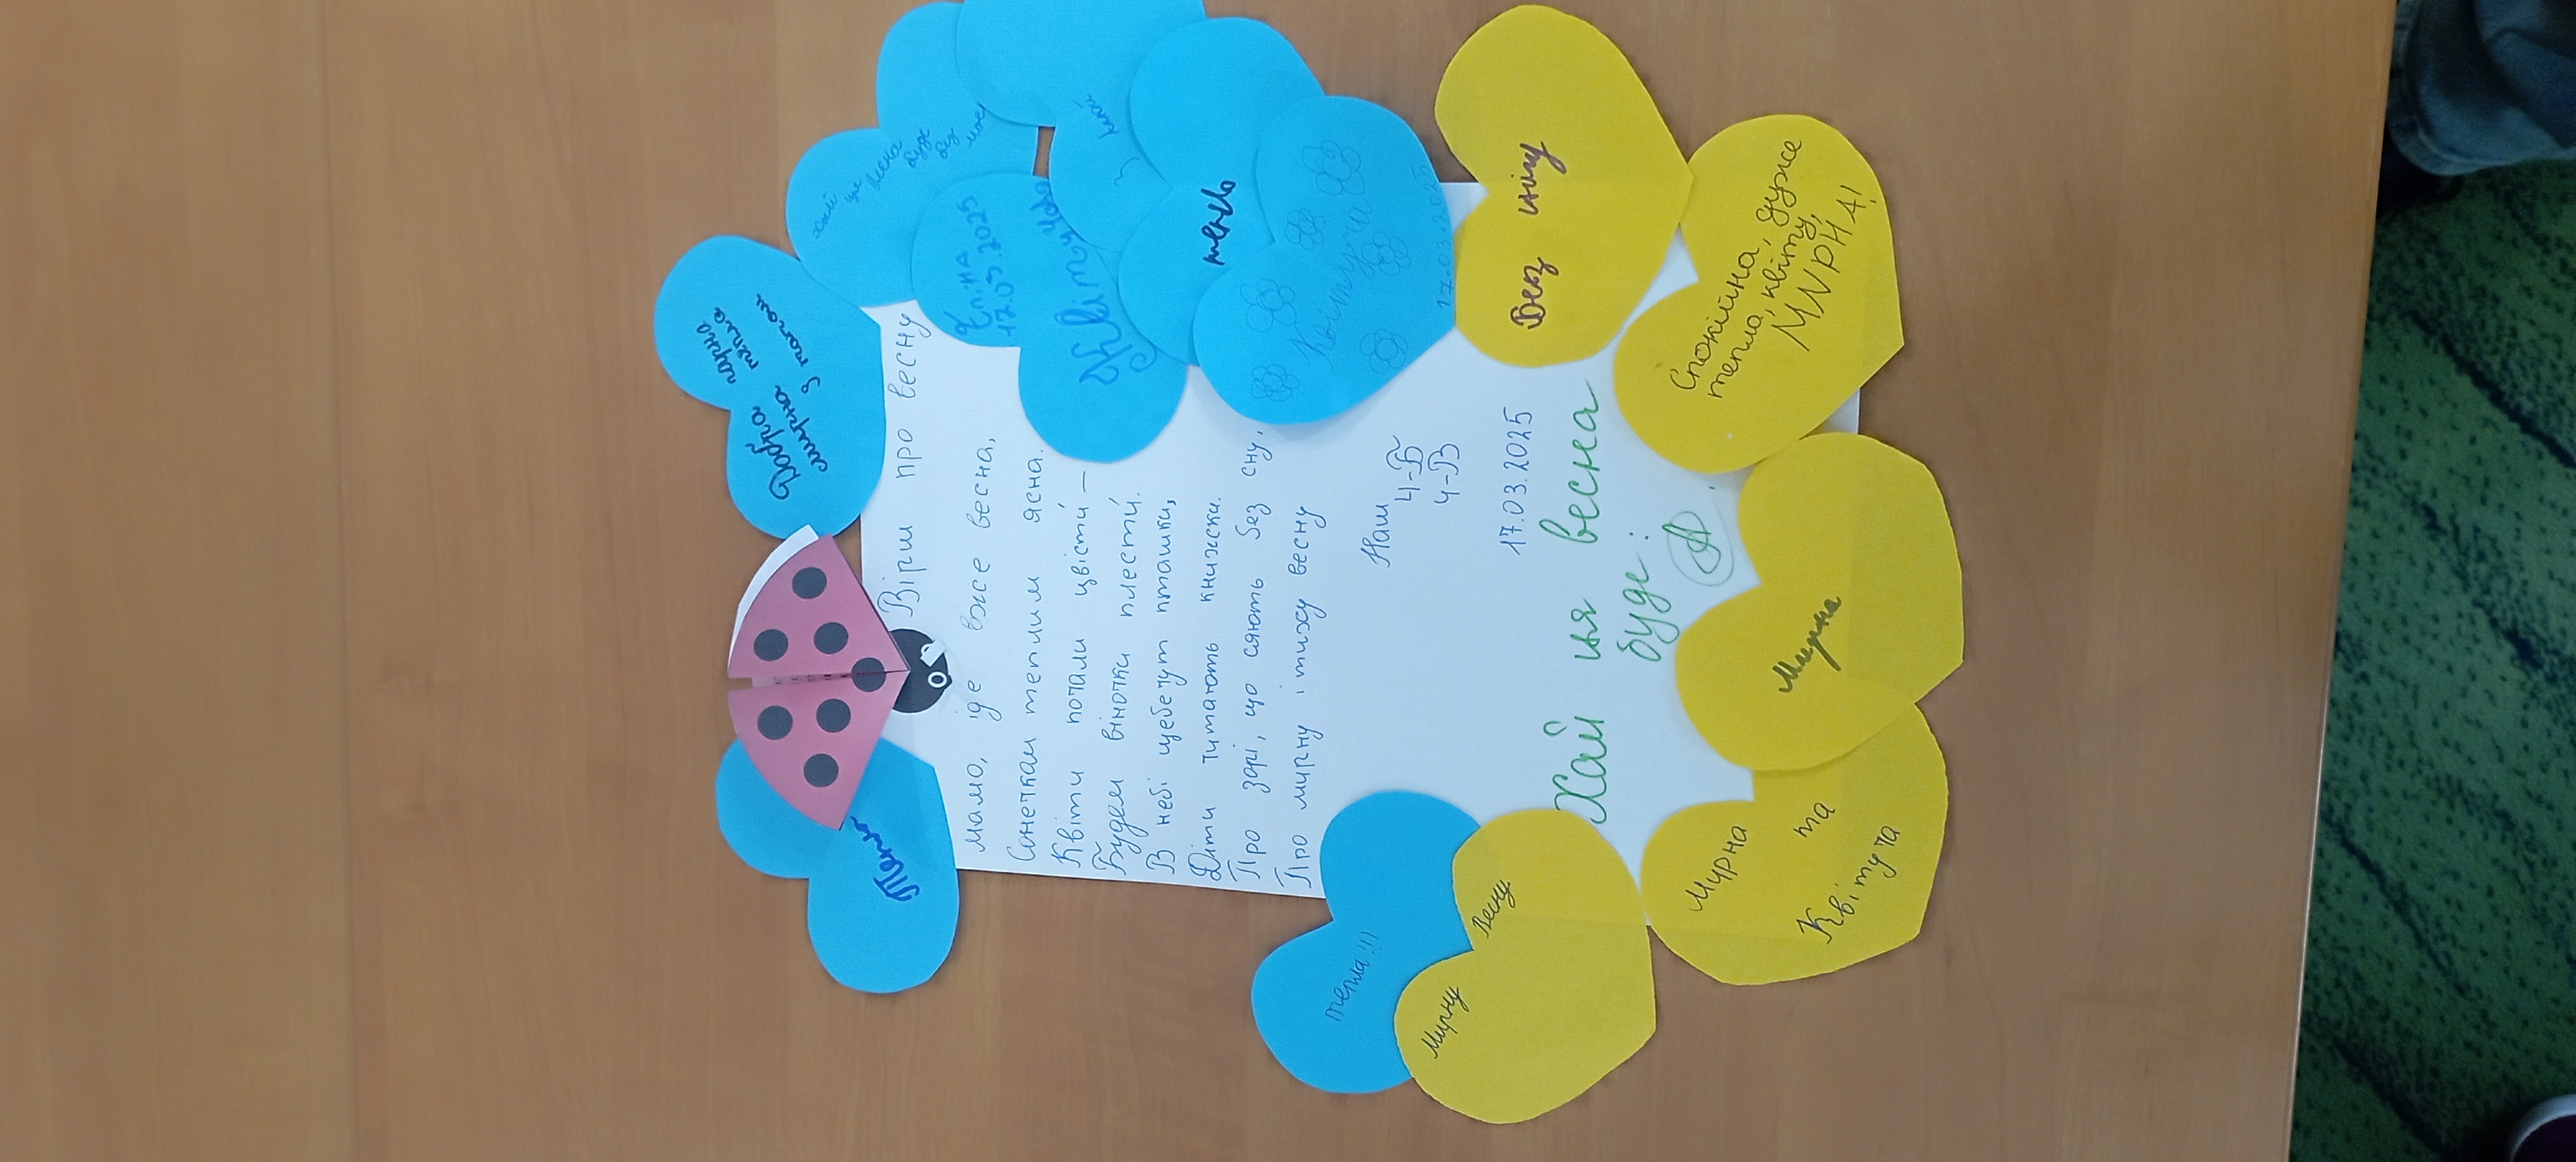 Вірш про весну
Мамо, іде вже весна,
Сонечком теплим ясна.
Квіти почали цвісти –
Будем віночки плести.
В небі щебечут пташки,
Діти читають книжки.
Про зорі, що сяють без сну,
Про мирну і тиху весну
Наш 4-Б
4-В
17.03.2025
Хай ця весна
буде:
Тепла
Добра гарна
мирна тепла
З татом
хай ця весна буде без
17.03.2025
Квітучою
З
тень
Квітуча
17.03.2025
Без иніу
Спокійна, дуже
тепла, квіту,
МИРНА!
Мирна
Мурна
та
Квітуча
тепла!!!
Мирну Весну